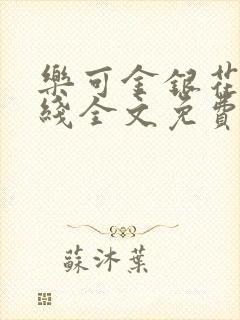 樂可金銀花
綫全文免費
蘇沐葉